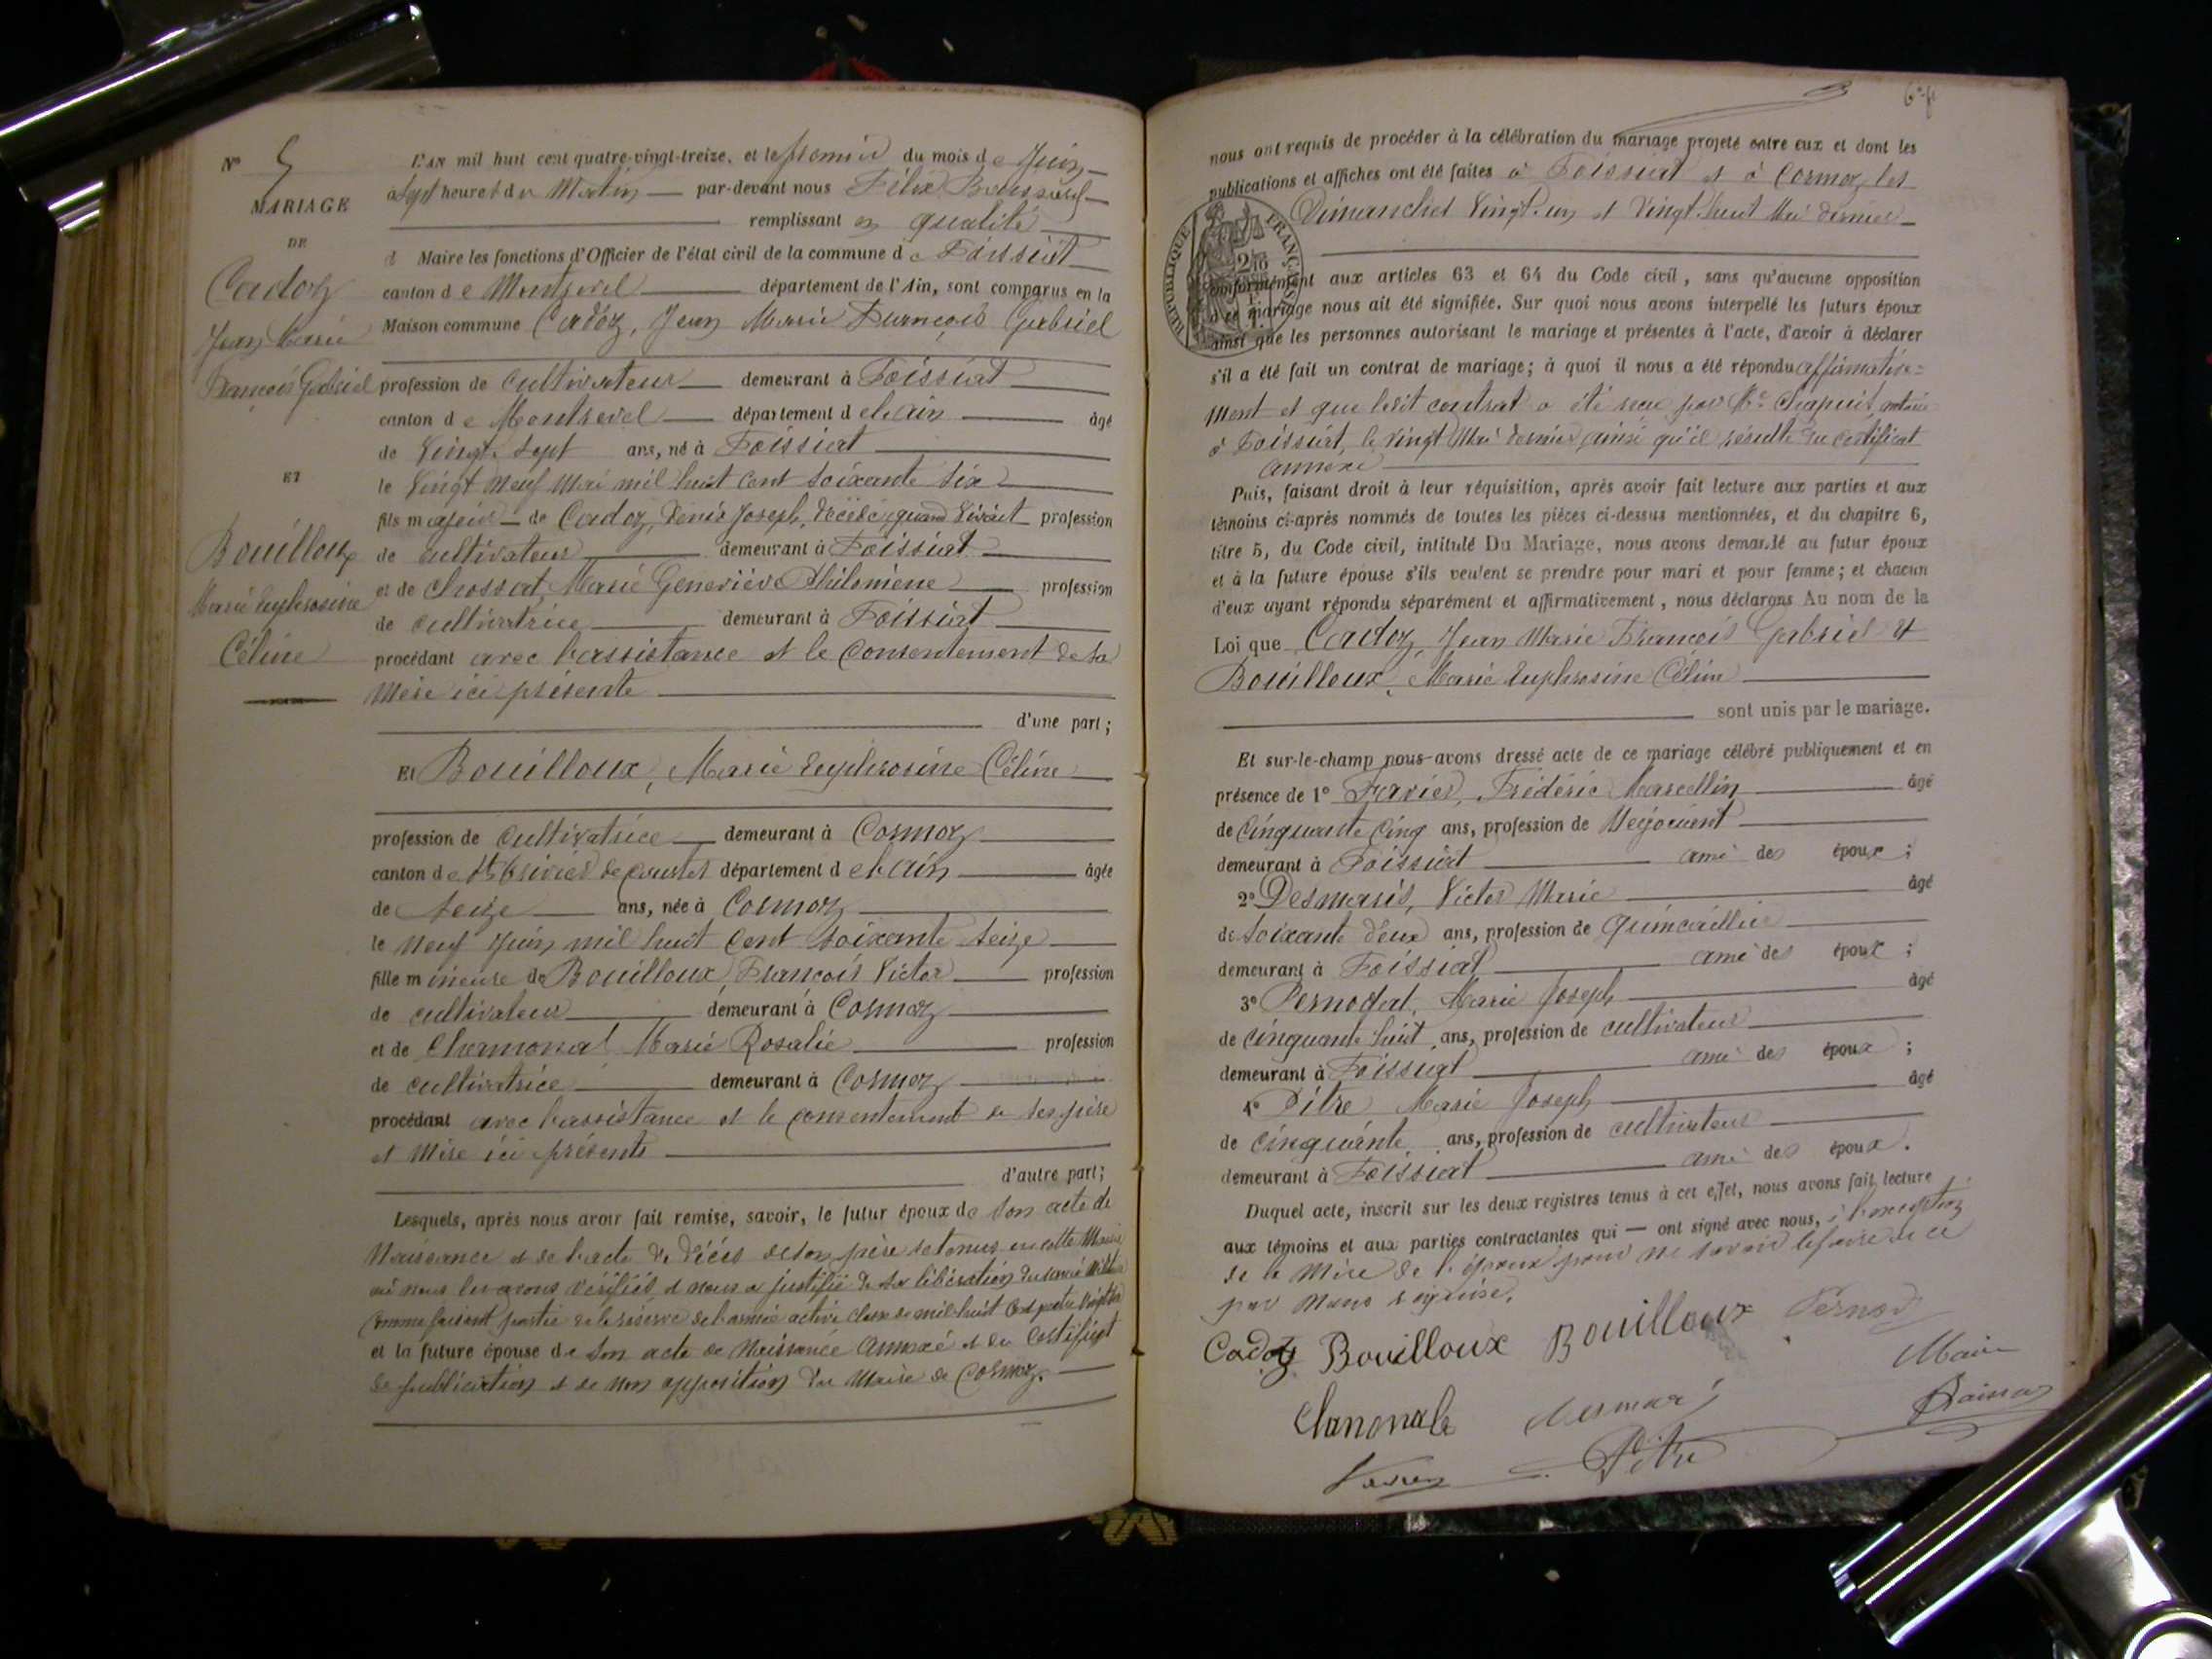 N° 5
MARIAGE
DE
Cadoz
Jean Marie
François Gabriel
ET
Bouilloux
Marie Euphrosine
Céline
L'AN mil huit cent quatre-vingt-treize, et le premier du mois de Juin
à sept heures du Matin par-devant nous Félix
remplissant en qualité
d Maire les fonctions d'Officier de l'état civil de la commune de Foissiat
canton de Montrevel département de l'Ain, sont comparus en la
Maison commune Cadoz, Jean Marie François Gabriel
profession de cultivateur demeurant à Foissiat
canton de Montrevel département de l'ain âgé
de Vingt sept ans, né à Foissiat
le Vingt neuf Mai mil huit cent soixante six
fils majeur de Cadoz, Denis Joseph, décédé, quand vivait profession
de cultivateur demeurant à Foissiat
et de Chossat, Marie Geneviève Philomène profession
de cultivatrice demeurant à Foissiat
procédant avec l'assistance et le consentement de sa
Mère ici présente
d'une part;
Et Bouilloux, Marie Euphrosine Céline
profession de cultivatrice demeurant à Cormoz
canton de St Trivier de Courtes département de l'ain âgée
de seize ans, née à Cormoz
le neuf Juin mil huit cent soixante seize
fille mineure de Bouilloux, François Victor profession
de cultivateur demeurant à Cormoz
et de Chamonal Marie Rosalie profession
de cultivatrice demeurant à Cormoz
procédant avec l'assistance et le consentement de ses père
et Mère ici présents
d'autre part;
Lesquels, après nous avoir fait remise, savoir, le futur époux de son acte de
Naissance et de l'acte de décès de son père retenus en cette Mairie
où nous les avons vérifiés et nous a justifié de sa libération du service Militaire
comme faisant partie de la réserve de l'armée active classe de mil huit cent quatre vingt
et la future épouse de son acte de Naissance annexé et du certificat
de publication et de non opposition du Maire de Cormoz.
nous ont requis de procéder à la célébration du mariage projeté entre eux et dont les
publications et affiches ont été faites à Foissiat et à Cormoz, les
Dimanches Vingt-un et Vingt-huit Mai dernier
RÉPUBLIQUE FRANÇAISE
conformément aux articles 63 et 64 du Code civil, sans qu'aucune opposition
à ce mariage nous ait été signifiée. Sur quoi nous avons interpellé les futurs époux
ainsi que les personnes autorisant le mariage et présentes à l'acte, d'avoir à déclarer
s'il a été fait un contrat de mariage; à quoi il nous a été répondu affirmative=
ment et que ledit contrat a été reçu par Me Chapuis, notaire
à Foissiat, le vingt Mai dernier ainsi qu'il résulte du certificat
annexé
Puis, faisant droit à leur réquisition, après avoir fait lecture aux parties et aux
témoins ci-après nommés de toutes les pièces ci-dessus mentionnées, et du chapitre 6,
titre 5, du Code civil, intitulé Du Mariage, nous avons demandé au futur époux
et à la future épouse s'ils veulent se prendre pour mari et pour femme; et chacun
d'eux ayant répondu séparément et affirmativement, nous déclarons Au nom de la
Loi que Cadoz, Jean Marie François Gabriel et
Bouilloux, Marie Euphrosine Céline
sont unis par le mariage.
Et sur-le-champ nous avons dressé acte de ce mariage célébré publiquement et en
présence de 1° Favier, Frédéric Marcellin âgé
de Cinquante Cinq ans, profession de Négociant
demeurant à Foissiat ami des époux;
2° Desmaris, Victor Marie âgé
de soixante deux ans, profession de quincaillier
demeurant à Foissiat ami des époux;
3° Pernodat, Marie Joseph âgé
de cinquante huit ans, profession de cultivateur
demeurant à Foissiat ami des époux;
4° Pitre Marie Joseph âgé
de cinquante ans, profession de cultivateur
demeurant à Foissiat ami des époux.
Duquel acte, inscrit sur les deux registres tenus à cet effet, nous avons fait lecture
aux témoins et aux parties contractantes qui — ont signé avec nous, à l'exception
de la Mère de l'époux pour ne savoir le faire de ce
par nous requise.
Cadoz Bouilloux Bouilloux Pernod
Maire
Chamonale Desmaris
Pitre